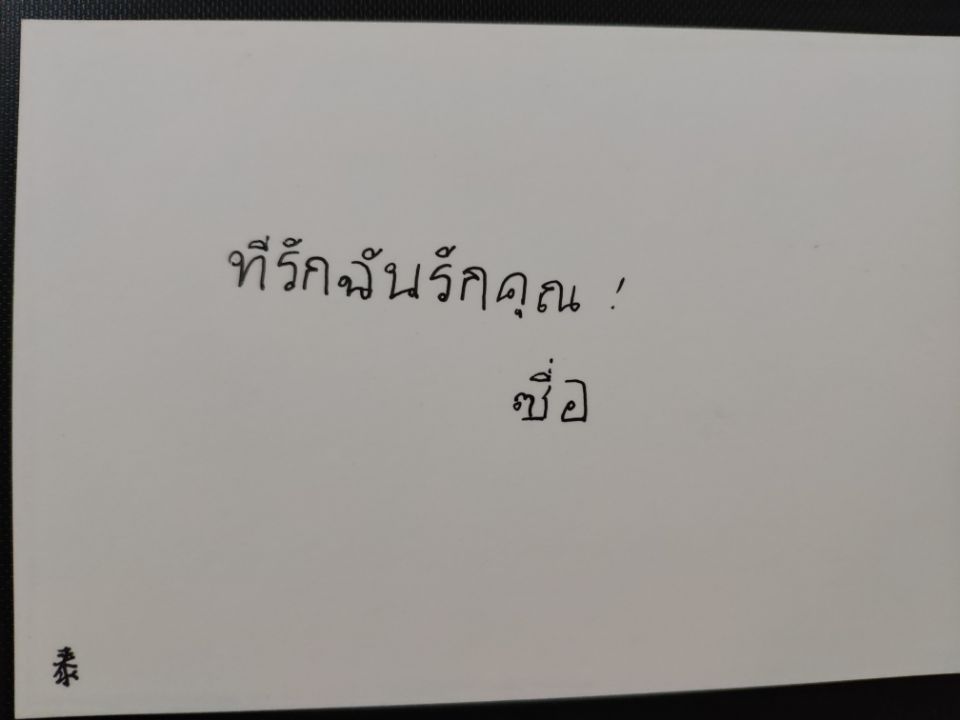 ที่รักฉันรักคุณ !
ซื่อ
泰